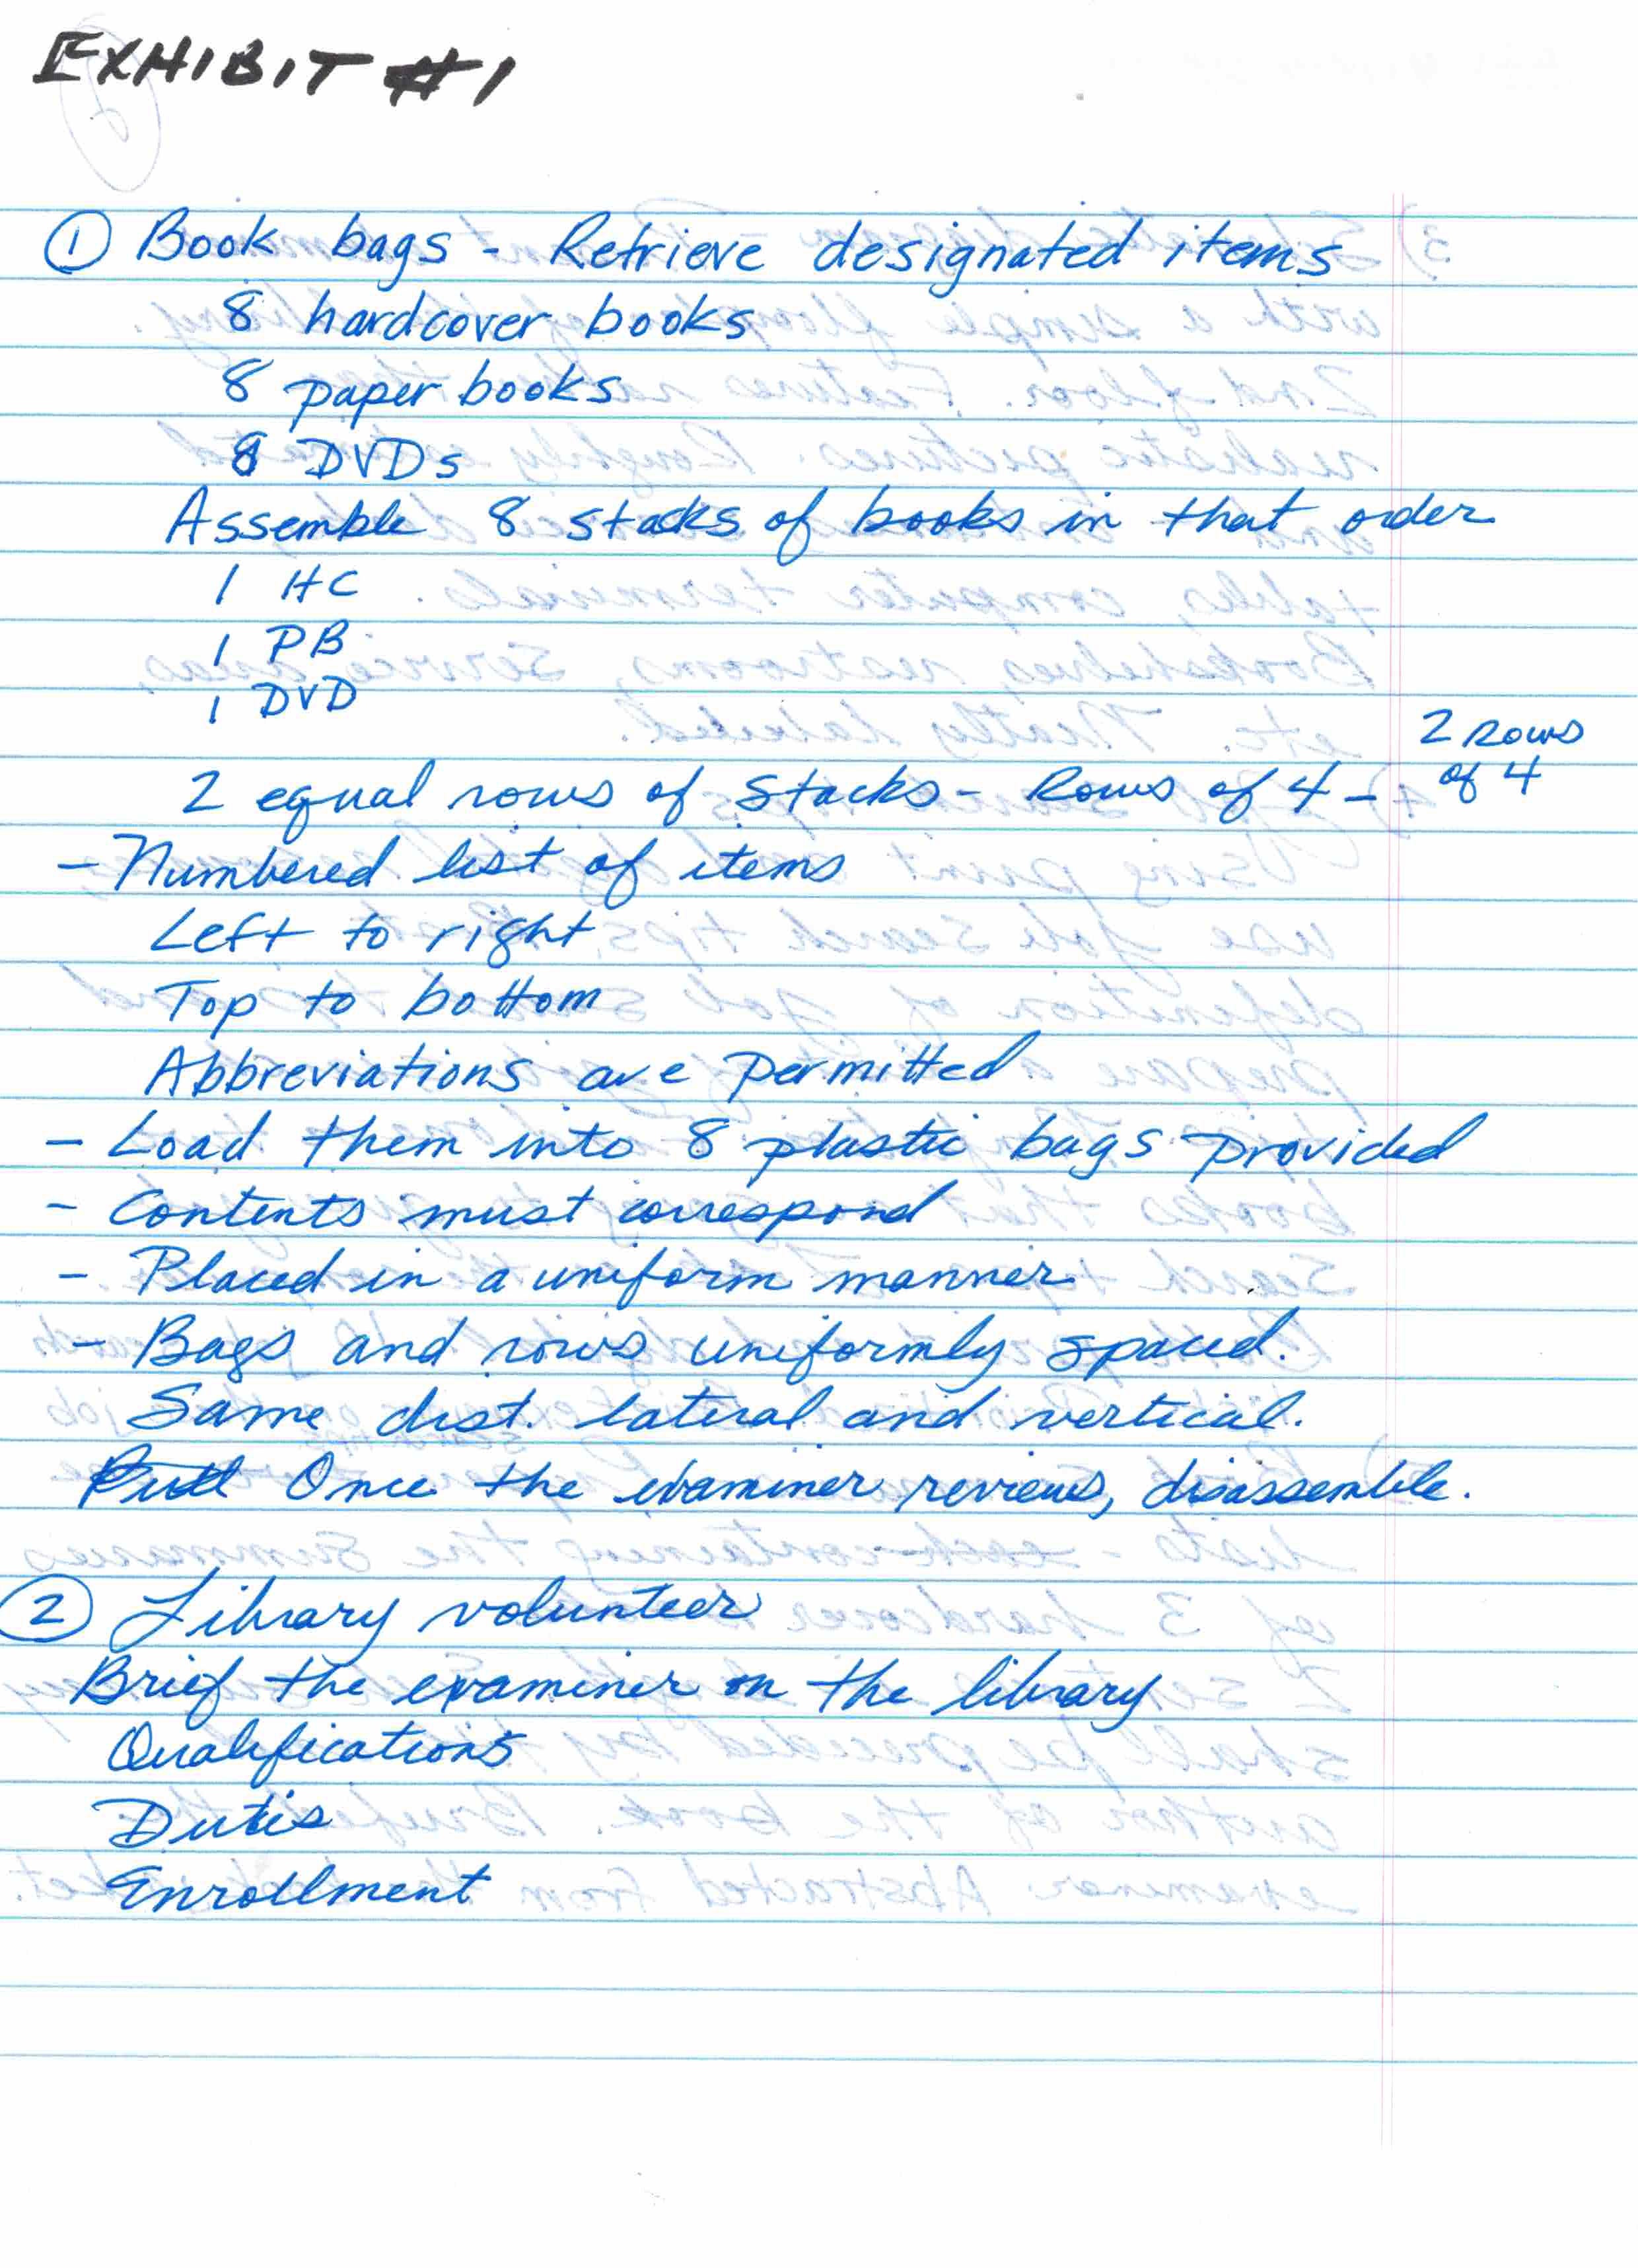 EXHIBIT #1
① Book bags - Retrieve designated items
8 hardcover books
8 paper books
8 DVDs
Assemble 8 stacks of books in that order
1 HC
1 PB
1 DVD
2 equal rows of stacks - Rows of 4 - 2 Rows of 4
- Numbered list of items
Left to right
Top to bottom
Abbreviations are permitted
- Load them into 8 plastic bags provided
- Contents must correspond
- Placed in a uniform manner
- Bags and rows uniformly spaced.
Same dist. lateral and vertical.
Once the examiner reviews, disassemble.
② Library volunteer
Brief the examiner on the library
Qualifications
Duties
Enrollment